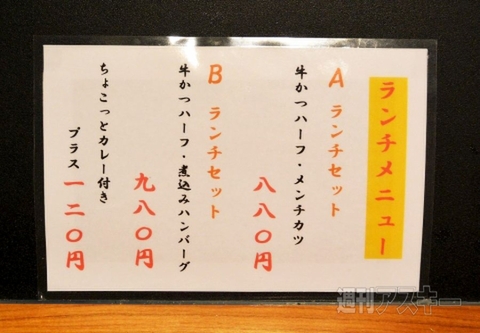 ランチメニュー
A ランチセット
牛かつハーフ・メンチカツ
八八〇円
B ランチセット
牛かつハーフ・煮込みハンバーグ
九八〇円
ちょこっとカレー付き
プラス一二〇円
週刊アスキー